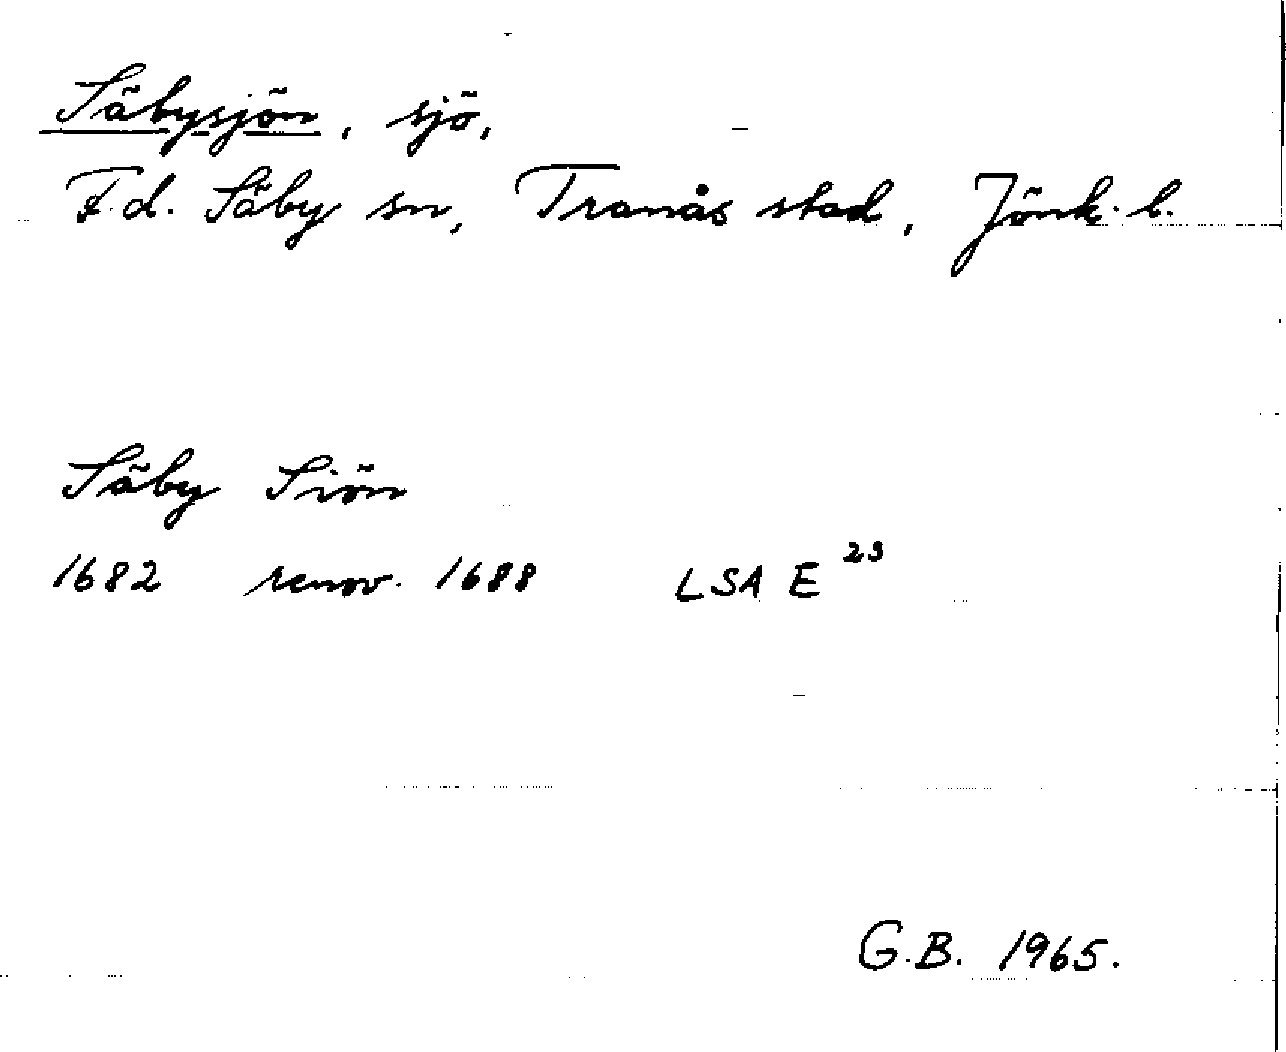 Säbysjön, sjö,
F.d. Säby sn, Tranås stad, Jönk. l.
Säby Siön
1682 renov. 1688 LSA E 23
G.B. 1965.